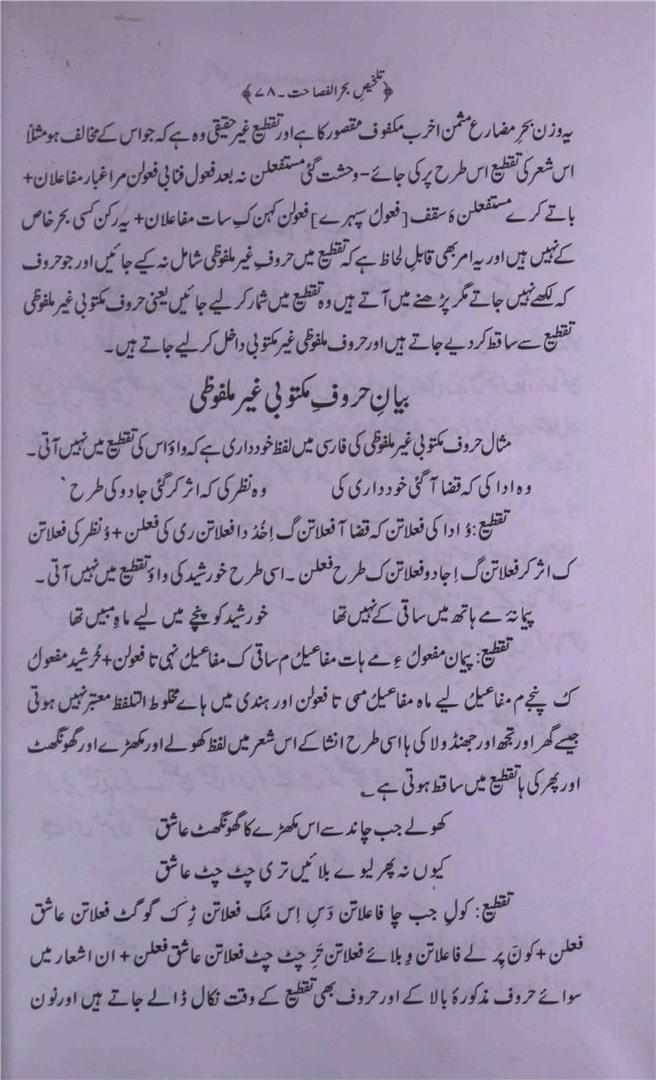 ﴿تلخیصِ بحر الفصاحت ۔ ۷۸﴾
یہ وزن بحرِ مضارع مثمن اخرب مکفوف مقصور کا ہے اور تقطیع غیر حقیقی وہ ہے کہ جو اس کے مخالف ہو مثلاً
اس شعر کی تقطیع اس طرح پر کی جائے ۔ وحشت گئی مستفعلن نہ بعد فعول فنا بی فعولن مراغبار مفاعلان +
باتے کرے مستفعلن ہٗ سقف [فعولُ سپہرے] فعولن کہن کِ سات مفاعلان + یہ رکن کسی بحر خاص
کے نہیں ہیں اور یہ امر بھی قابلِ لحاظ ہے کہ تقطیع میں حروفِ غیر ملفوظی شامل نہ کیے جائیں اور جو حروف
کہ لکھے نہیں جاتے مگر پڑھنے میں آتے ہیں وہ تقطیع میں شمار کر لیے جائیں یعنی حروف مکتوبی غیر ملفوظی
تقطیع سے ساقط کر دیے جاتے ہیں اور حروف ملفوظی غیر مکتوبی داخل کر لیے جاتے ہیں۔
بیانِ حروفِ مکتوبی غیر ملفوظی
مثال حروف مکتوبی غیر ملفوظی کی فارسی میں لفظ خود داری ہے کہ واؤ اس کی تقطیع میں نہیں آتی۔
وہ ادا کی کہ قضا آ گئی خود داری کی وہ نظر کی کہ اثر کر گئی جادو کی طرح
تقطیع: وُ ادا کی فعلاتن کہ قضا آ فعلاتن گ اِخُد دا فعلاتن ری کی فعلن + وُ نظر کی فعلاتن
کِ اثر کر فعلاتن گ اِجادو فعلاتن ک طرح فعلن۔ اسی طرح خورشید کی واؤ تقطیع میں نہیں آتی۔
پیمانۂ مے ہاتھ میں ساقی کے نہیں تھا خورشید کو پنجے میں لیے ماہِ مبیں تھا
تقطیع: پیمان مفعولُ ءِ مے ہات مفاعیلُ م ساقی ک مفاعیلُ نہی تا فعولن + خُرشید مفعولُ
کُ پنجے م مفاعیلُ لیے ماہ مفاعیلُ مبی تا فعولن اور ہندی میں ہاے مخلوط التلفظ معتبر نہیں ہوتی
جیسے گھر اور تجھ اور جھنڈولا کی ہا اسی طرح انشا کے اس شعر میں لفظ کھولے اور مکھڑے اور گھونگھٹ
اور پھر کی ہا تقطیع میں ساقط ہوتی ہے؂
کھولے جب چاند سے اس مکھڑے کا گھونگھٹ عاشق
کیوں نہ پھر لیوے بلائیں تری چٹ چٹ عاشق
تقطیع: کولِ جب چا فاعلاتن دَسِ اِس مُک فعلاتن ڑِ ک گوگٹ فعلاتن عاشق
فعلن + کونَ پر لے فاعلاتن وِ بلائے فعلاتن تَرِ چٹ چٹ فعلاتن عاشق فعلن + ان اشعار میں
سوائے حروف مذکورۂ بالا کے اور حروف بھی تقطیع کے وقت نکال ڈالے جاتے ہیں اور نون